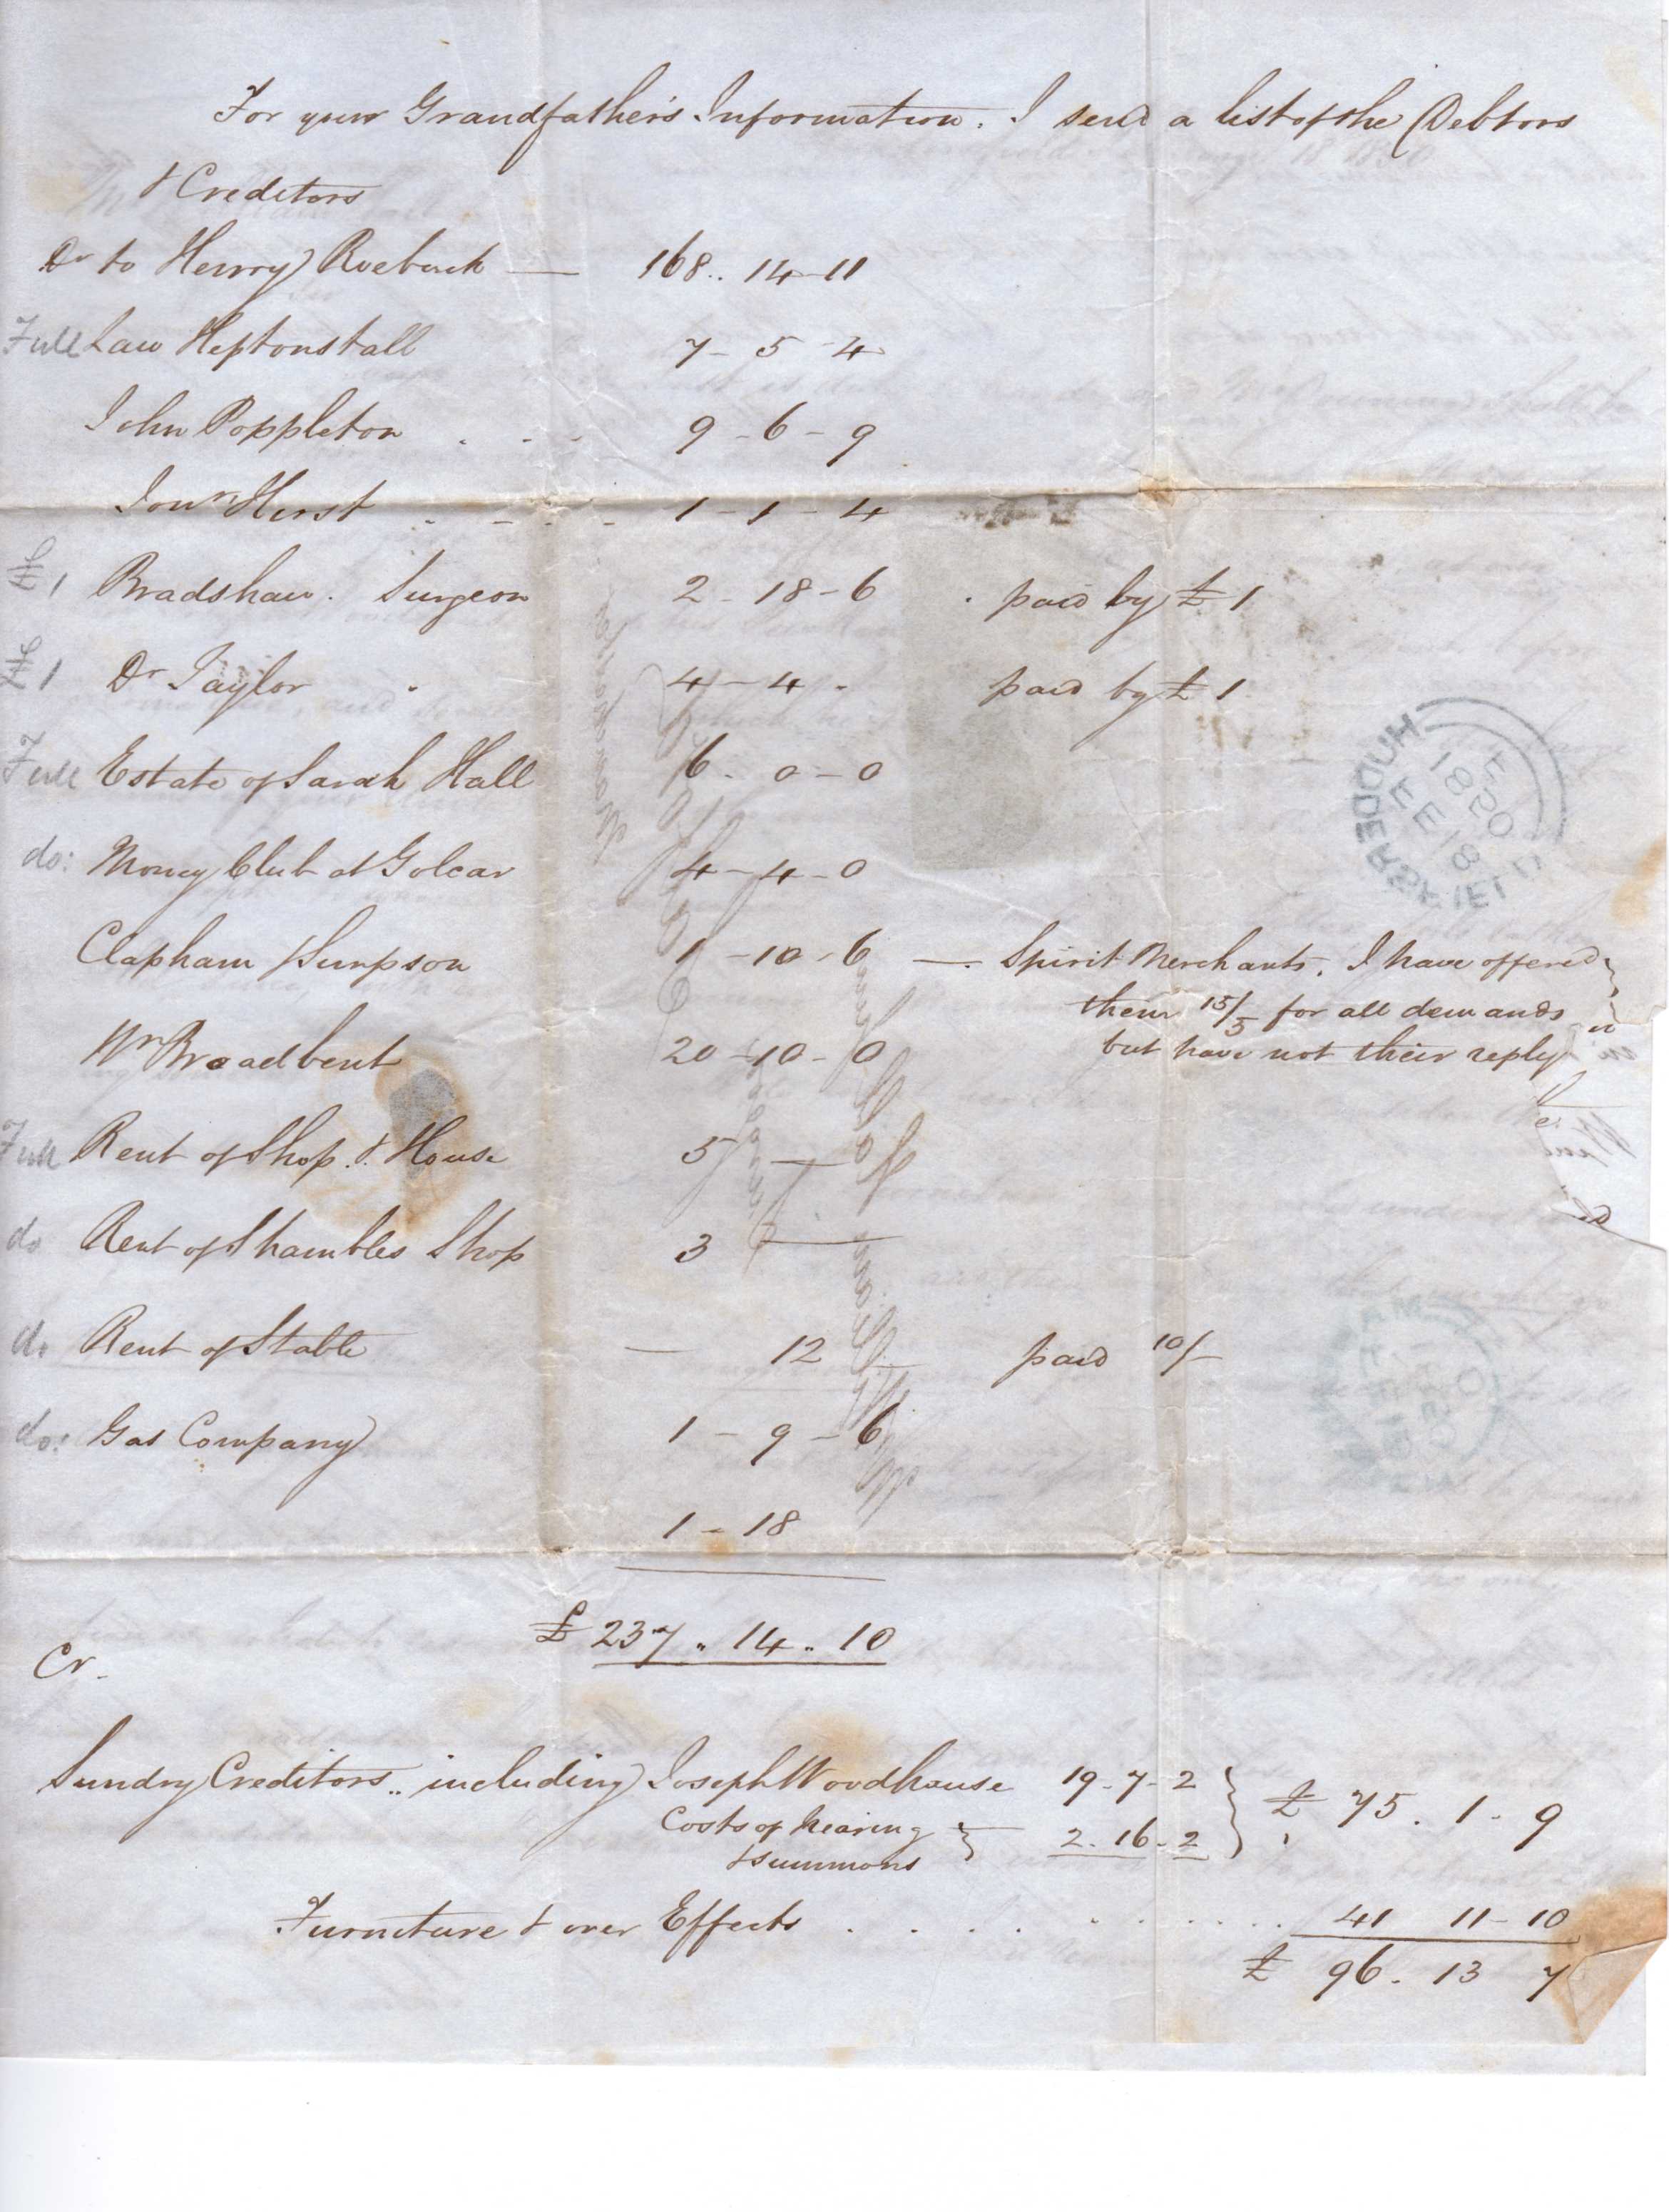 For your Grandfather's Information. I send a list of the Debtors
& Creditors
Dr to Henry Roebuck — 168.. 14 - 11
Full Law Heptonstall 7 - 5 - 4
John Poppleton . - - 9 - 6 - 9
Jonn Hirst . - . - 1 - 1 - 4
£1 Bradshaw. Surgeon 2 - 18 - 6 . paid by £1
£1 Dr Taylor . 4 - 4 - paid by £1
Full Estate of Sarah Hall 6 - 0 - 0
do: Money Club at Golcar 4 - 4 - 0
Clapham & Simpson 1 - 10 - 6 — Spirit Merchants. I have offered
them 15/5 for all demands
but have not their reply
Wm Broadbent 20 - 10 - 0
Full Rent of Shop & House 5 —
do Rent of Shambles Shop 3 —
do Rent of Stable — 12 paid 10/-
do: Gas Company 1 - 9 - 6
1 - 18
£ 237 .. 14 .. 10
Cr.
Sundry Creditors.. including Joseph Woodhouse 19 - 7 - 2 } £ 75 . 1 - 9
Costs of hearing } 2 - 16 - 2
& summons
Furniture & over Effects . . . . . . . . . 41 11 - 10
£ 96 . 13 7
HUDDERSFIELD
FE 18
1850